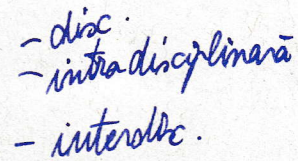 - disc.
- intradisciplinară
- interdisc.